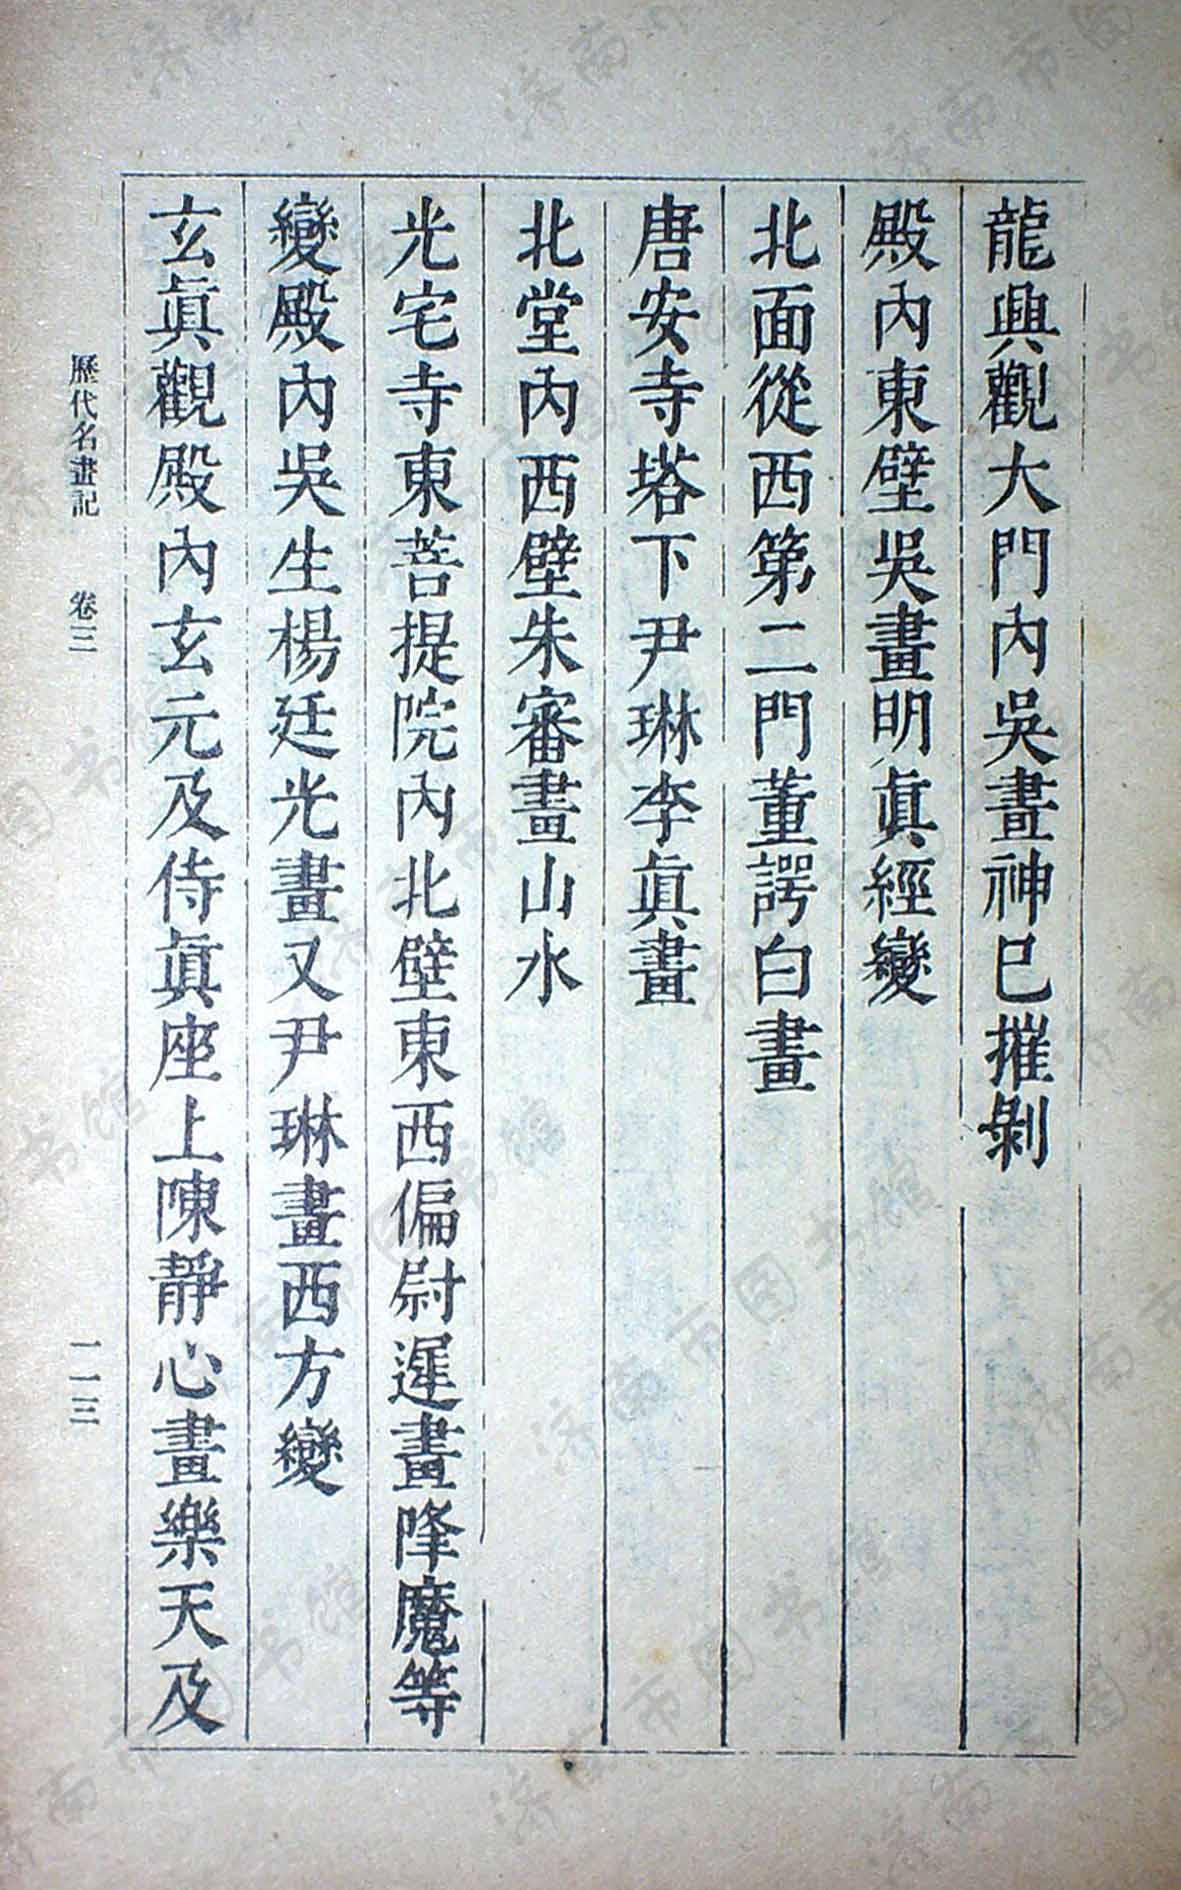 龍興觀大門內吳畫神已摧剝
殿內東壁吳畫明眞經變
北面從西第二門董諤白畫
唐安寺塔下尹琳李眞畫
北堂內西壁朱審畫山水
光宅寺東菩提院內北壁東西偏尉遲畫降魔等
變殿內吳生楊廷光畫又尹琳畫西方變
玄眞觀殿內玄元及侍眞座上陳靜心畫樂天及
歷代名畫記 卷三 一一三
济南市图书馆